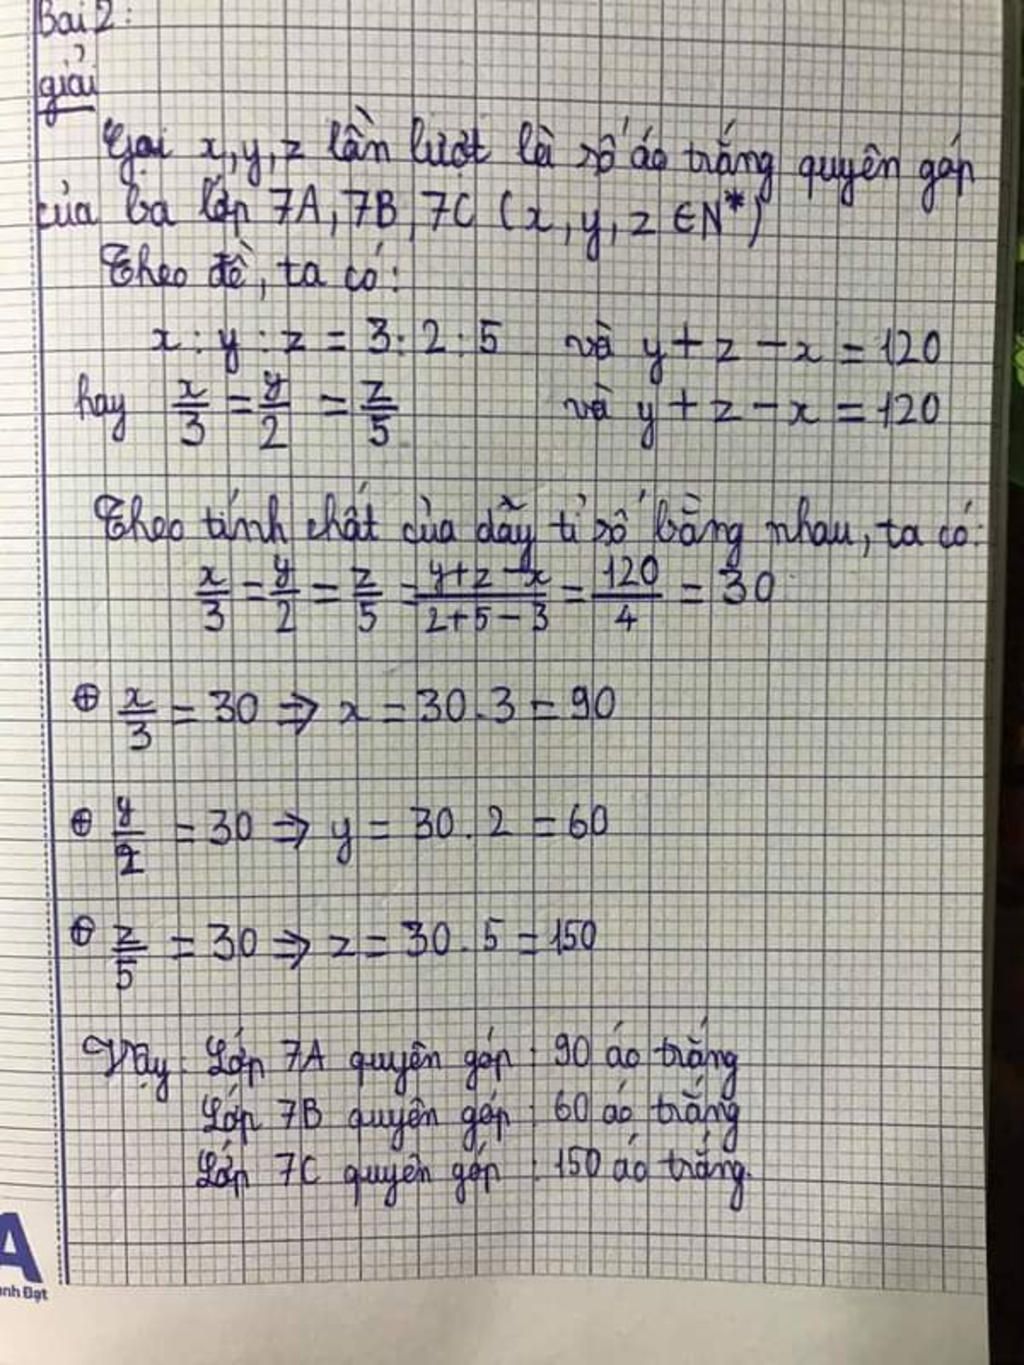 Bài 2:
giải
Gọi x, y, z lần lượt là số áo trắng quyên góp
của ba lớp 7A, 7B, 7C (x, y, z ∈ N*)
Theo đề, ta có:
x : y : z = 3 : 2 : 5 và y + z - x = 120
hay x/3 = y/2 = z/5 và y + z - x = 120
Theo tính chất của dãy tỉ số bằng nhau, ta có:
x/3 = y/2 = z/5 = (y+z-x)/(2+5-3) = 120/4 = 30
⊕ x/3 = 30 ⇒ x = 30 . 3 = 90
⊕ y/2 = 30 ⇒ y = 30 . 2 = 60
⊕ z/5 = 30 ⇒ z = 30 . 5 = 150
Vậy : Lớp 7A quyên góp : 90 áo trắng
Lớp 7B quyên góp : 60 áo trắng
Lớp 7C quyên góp : 150 áo trắng.
A
ành Đạt